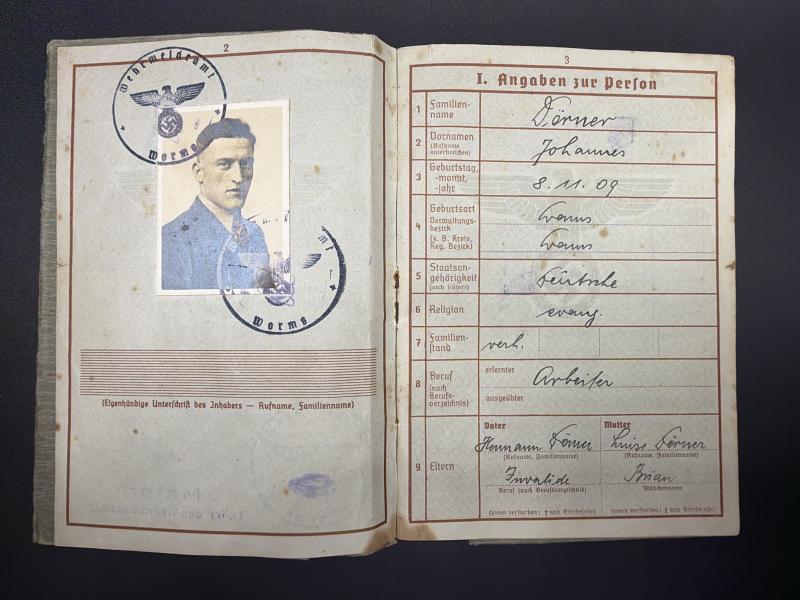 2
Wehrmeldeamt
Worms
Worms
(Eigenhändige Unterschrift des Inhabers — Rufname, Familienname)
3
I. Angaben zur Person
1 Familien-
name
Dörner
2 Vornamen
(Rufname
unterstreichen)
Johannes
3 Geburtstag,
-monat,
-jahr
8.11.09
4 Geburtsort
Verwaltungs-
bezirk
(z. B. Kreis,
Reg. Bezirk)
Worms
Worms
5 Staatsan-
gehörigkeit
(auch frühere)
Deutsche
6 Religion
evang.
7 Familien-
stand
verh.
8 Beruf
(nach
Berufs-
verzeichnis)
erlernter
Arbeiter
ausgeübter
9 Eltern
Vater Mutter
Hermann Dörner Luise Dörner
(Rufname, Familienname) (Rufname, Familienname)
Invalide Brian
Beruf (nach Berufsverzeichnis) Mädchenname
(wenn verstorben: † und Sterbejahr) (wenn verstorben: † und Sterbejahr)